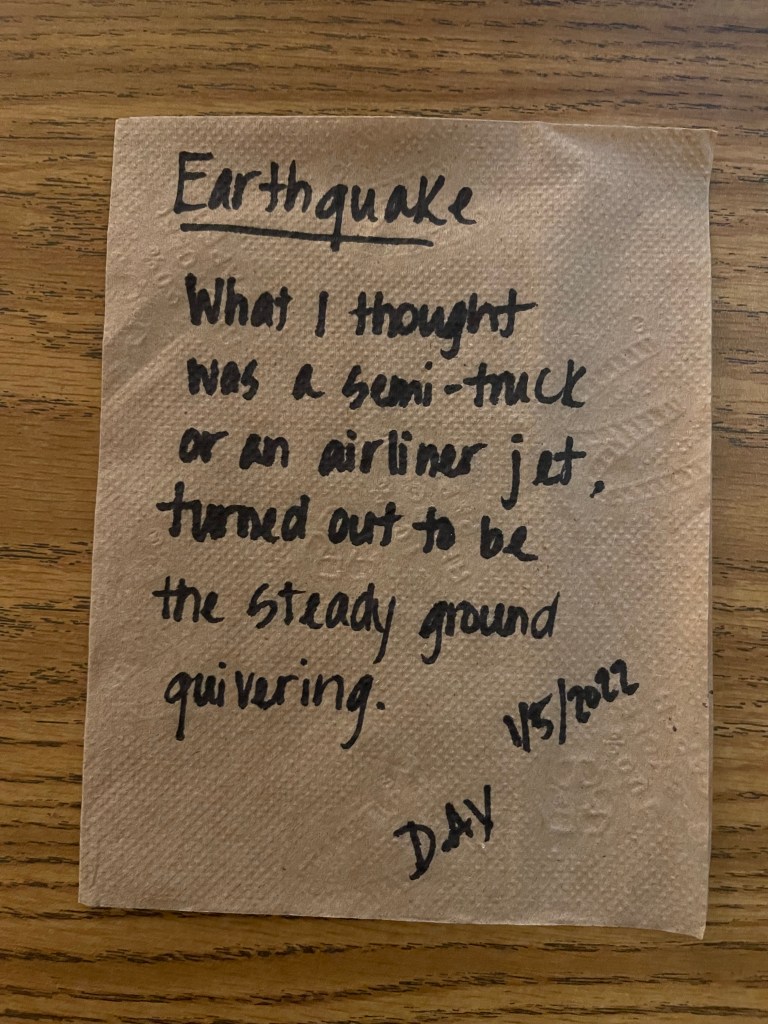 Earthquake
What I thought
was a semi-truck
or an airliner jet,
turned out to be
the steady ground
quivering.
1/5/2022
DAY